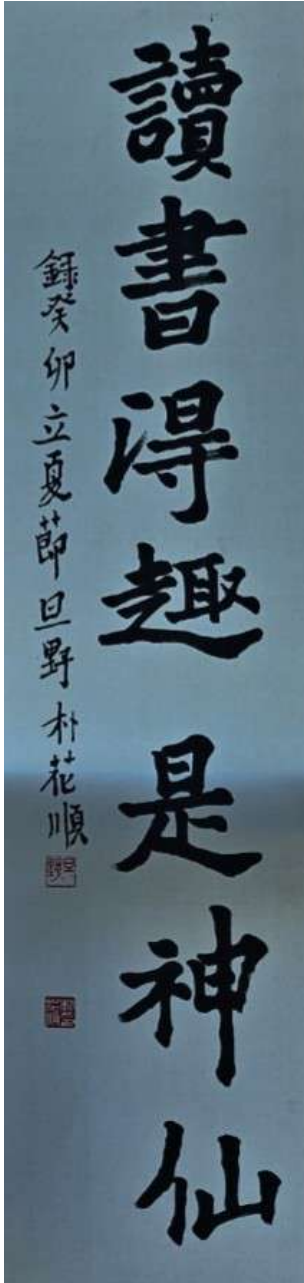 讀書得趣是神仙
錄癸卯立夏節旦野朴花順